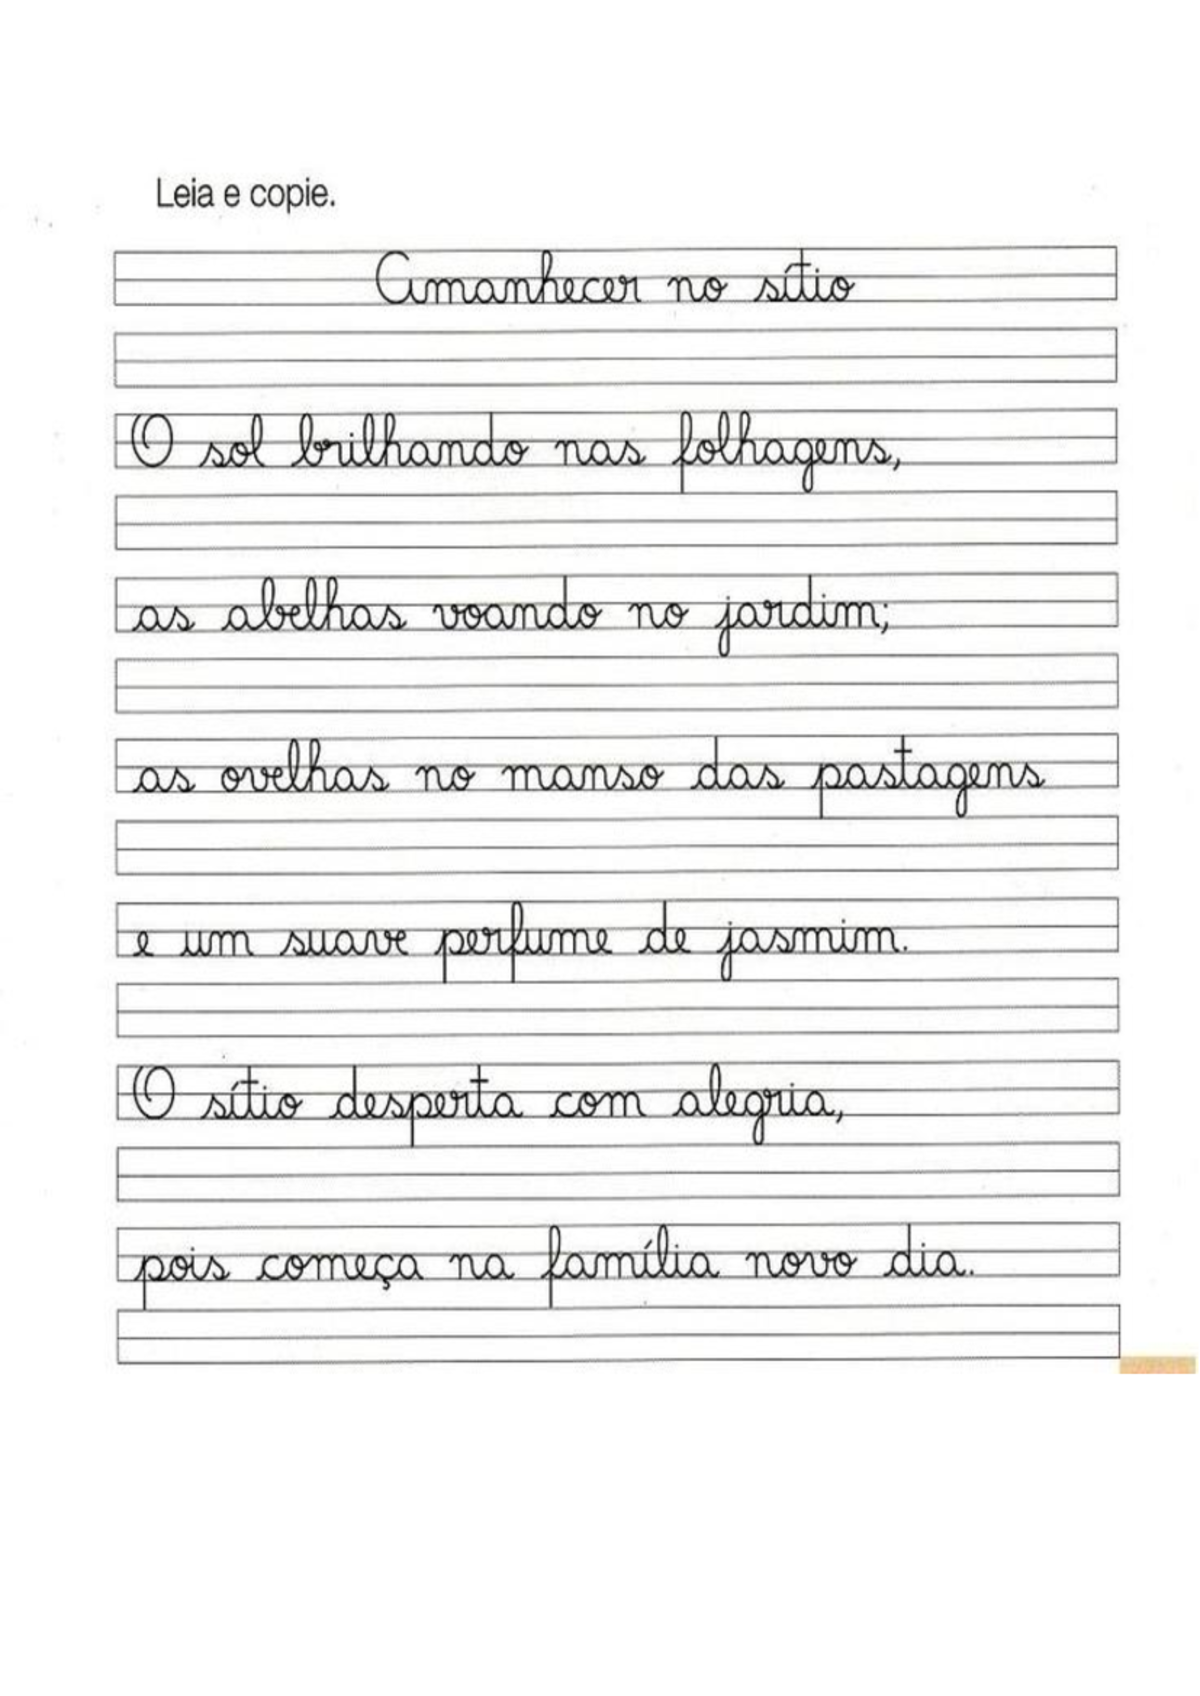 Leia e copie.
Amanhecer no sítio
O sol brilhando nas folhagens,
as abelhas voando no jardim;
as ovelhas no manso das pastagens
e um suave perfume de jasmim.
O sítio desperta com alegria,
pois começa na família novo dia.